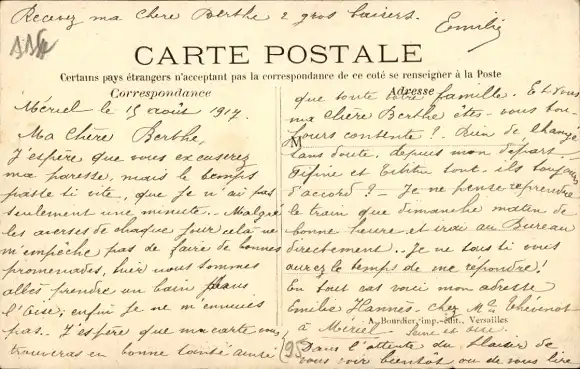 Recevez ma chère Berthe 2 gros baisers.
Emilie
CARTE POSTALE
Certains pays étrangers n'acceptant pas la correspondance de ce coté se renseigner à la Poste
Correspondance
Mériel le 15 août 1917.
Ma Chère Berthe,
J'espère que vous excuserez
ma paresse, mais le temps
passe si vite, que je n'ai pas
seulement une minute. Malgré
les averses de chaque jour cela ne
m'empêche pas de faire de bonnes
promenades, hier nous sommes
allés prendre un bain dans
l'Oise; enfin je ne m'ennuies
pas. J'espère que ma carte vous
trouveras en bonne santé ainsi
Adresse
que toute votre famille. Et vous
ma chère Berthe êtes-vous tou-
jours contente? Rien de changé
M
sans doute, depuis mon départ
Fifine et Titine sont-ils toujours
d'accord? - Je ne pense reprendre
le train que dimanche matin de
bonne heure et irai au Bureau
directement. Je ne sais si vous
aurez le temps de me répondre!
En tout cas voici mon adresse
Emilie Hannès chez Me Thévenot
à Mériel Seine et Oise.
A. Bourdier, imp.-édit., Versailles
95
Dans l'attente du plaisir de
vous voir bientôt ou de vous lire